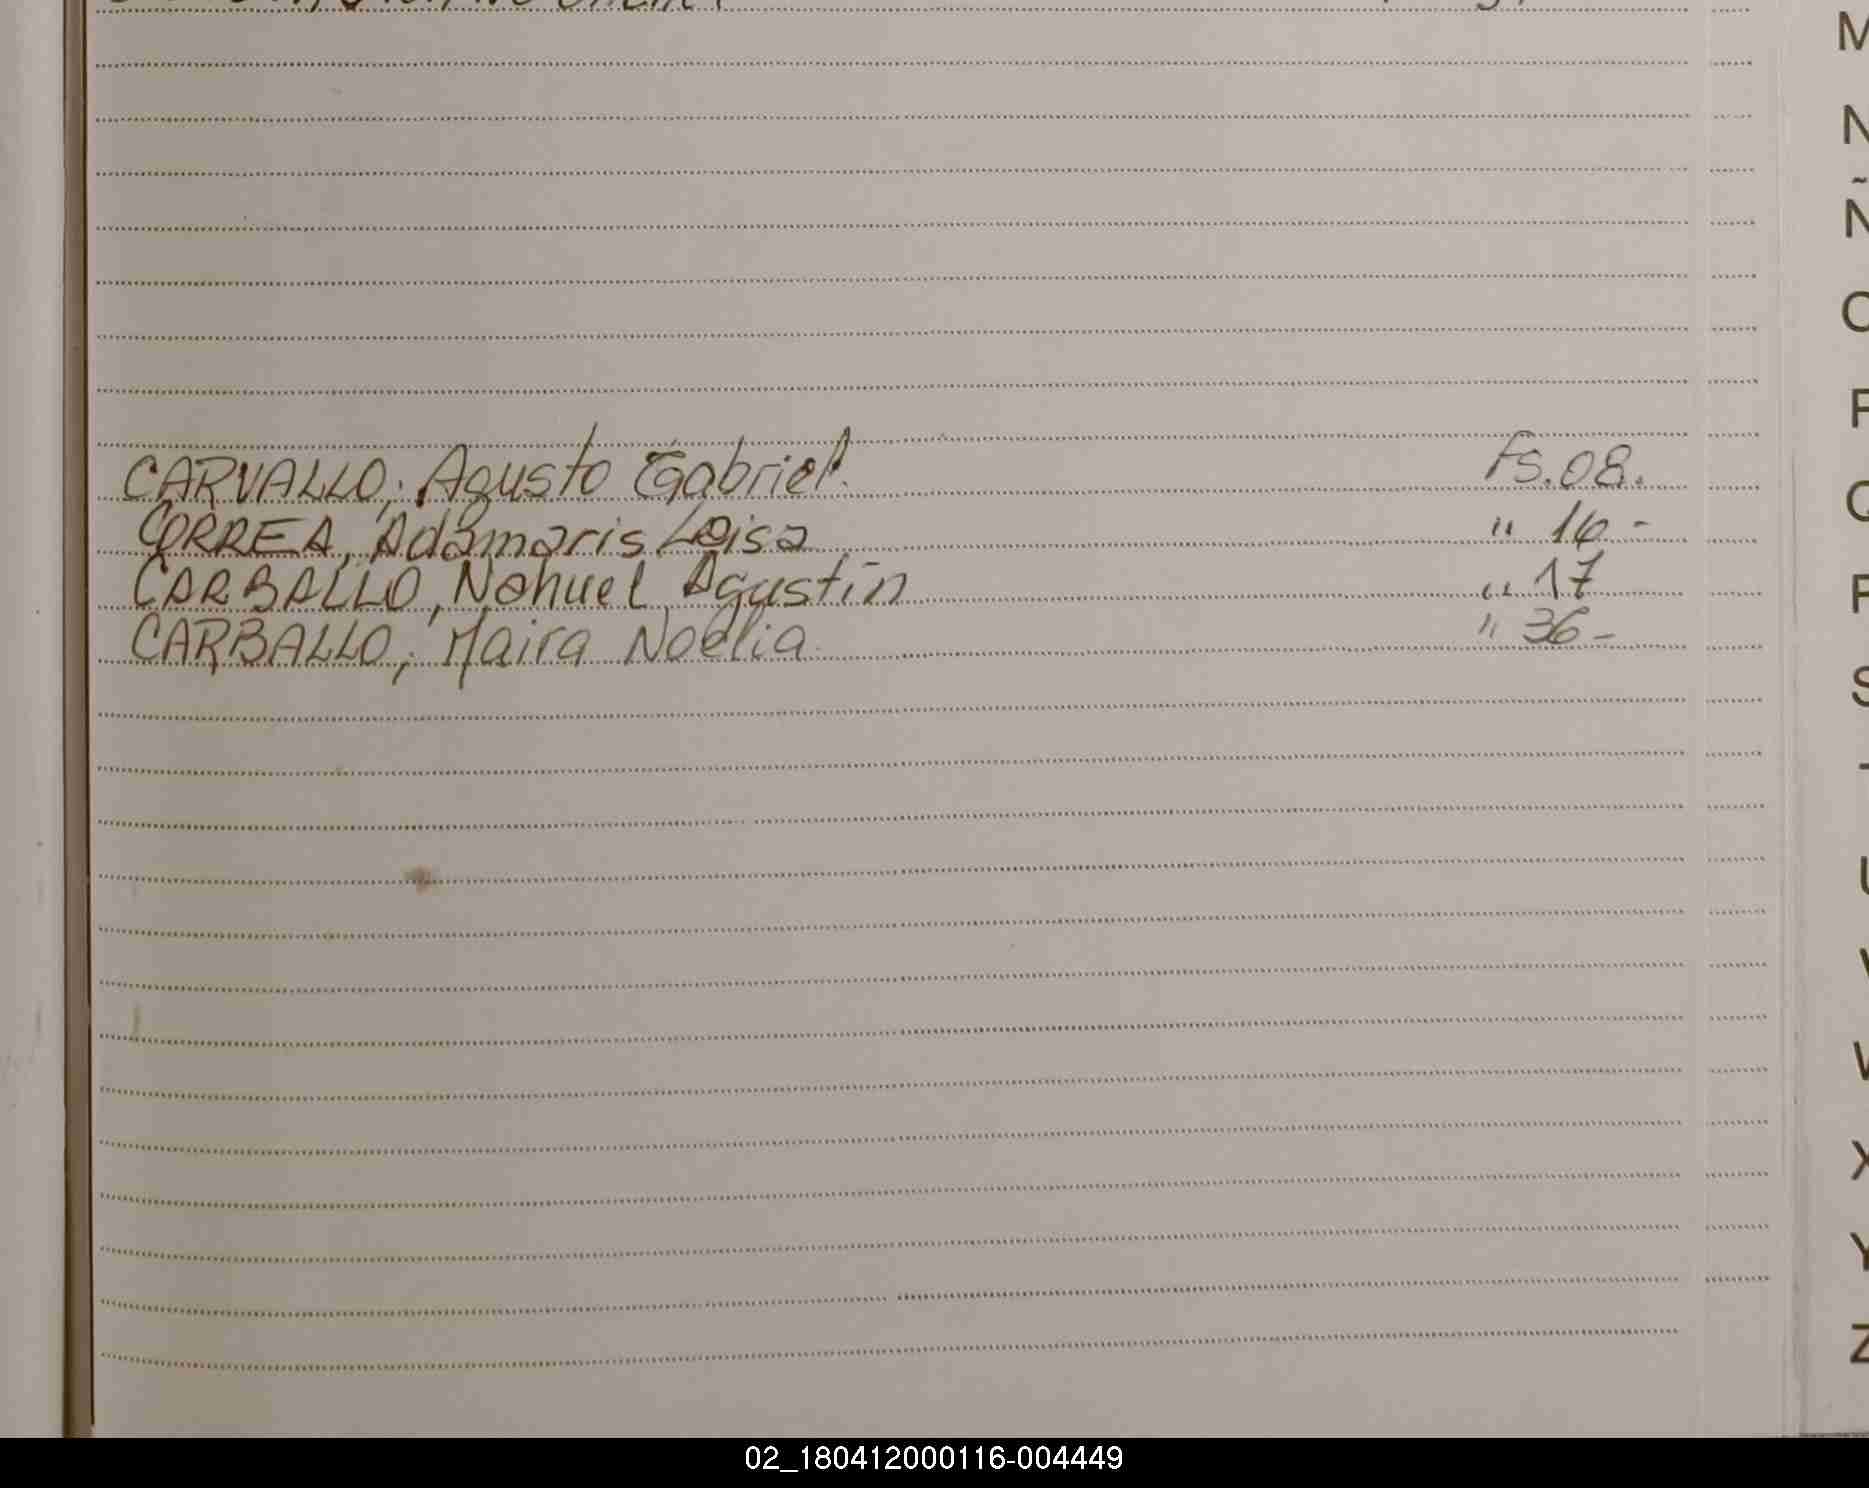 CARVALLO; Agusto Gabriel. Fs. 08.
CORREA, Adamaris Loisa " 16 -
CARBALLO, Nahuel Agustín " 17
CARBALLO; Maira Noelia. " 36 -
M
N
Ñ
O
P
Q
R
S
T
U
V
W
X
Y
Z
02_180412000116-004449